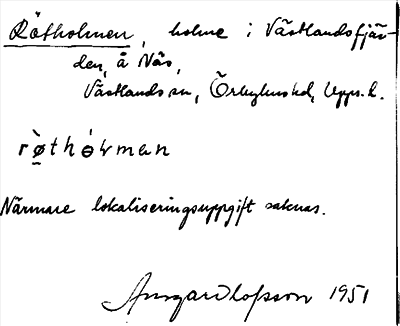 Rötholmen, holme i Västlandsfjär-
den, å Näs,
Västlands sn, Örbyhus hd, Upps. l.
rø̀thɵ́ɫman
Närmare lokaliseringsuppgift saknas.
Ansgar Olofsson 1951